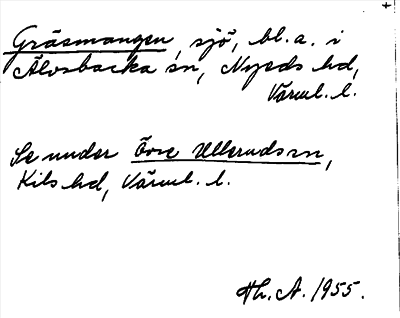 Gräsmangen, sjö, bl.a. i
Älvsbacka sn, Nyeds hd,
Värml. l.
Se under Övre Ulleruds sn,
Kils hd, Värml. l.
Hh. A. 1955.